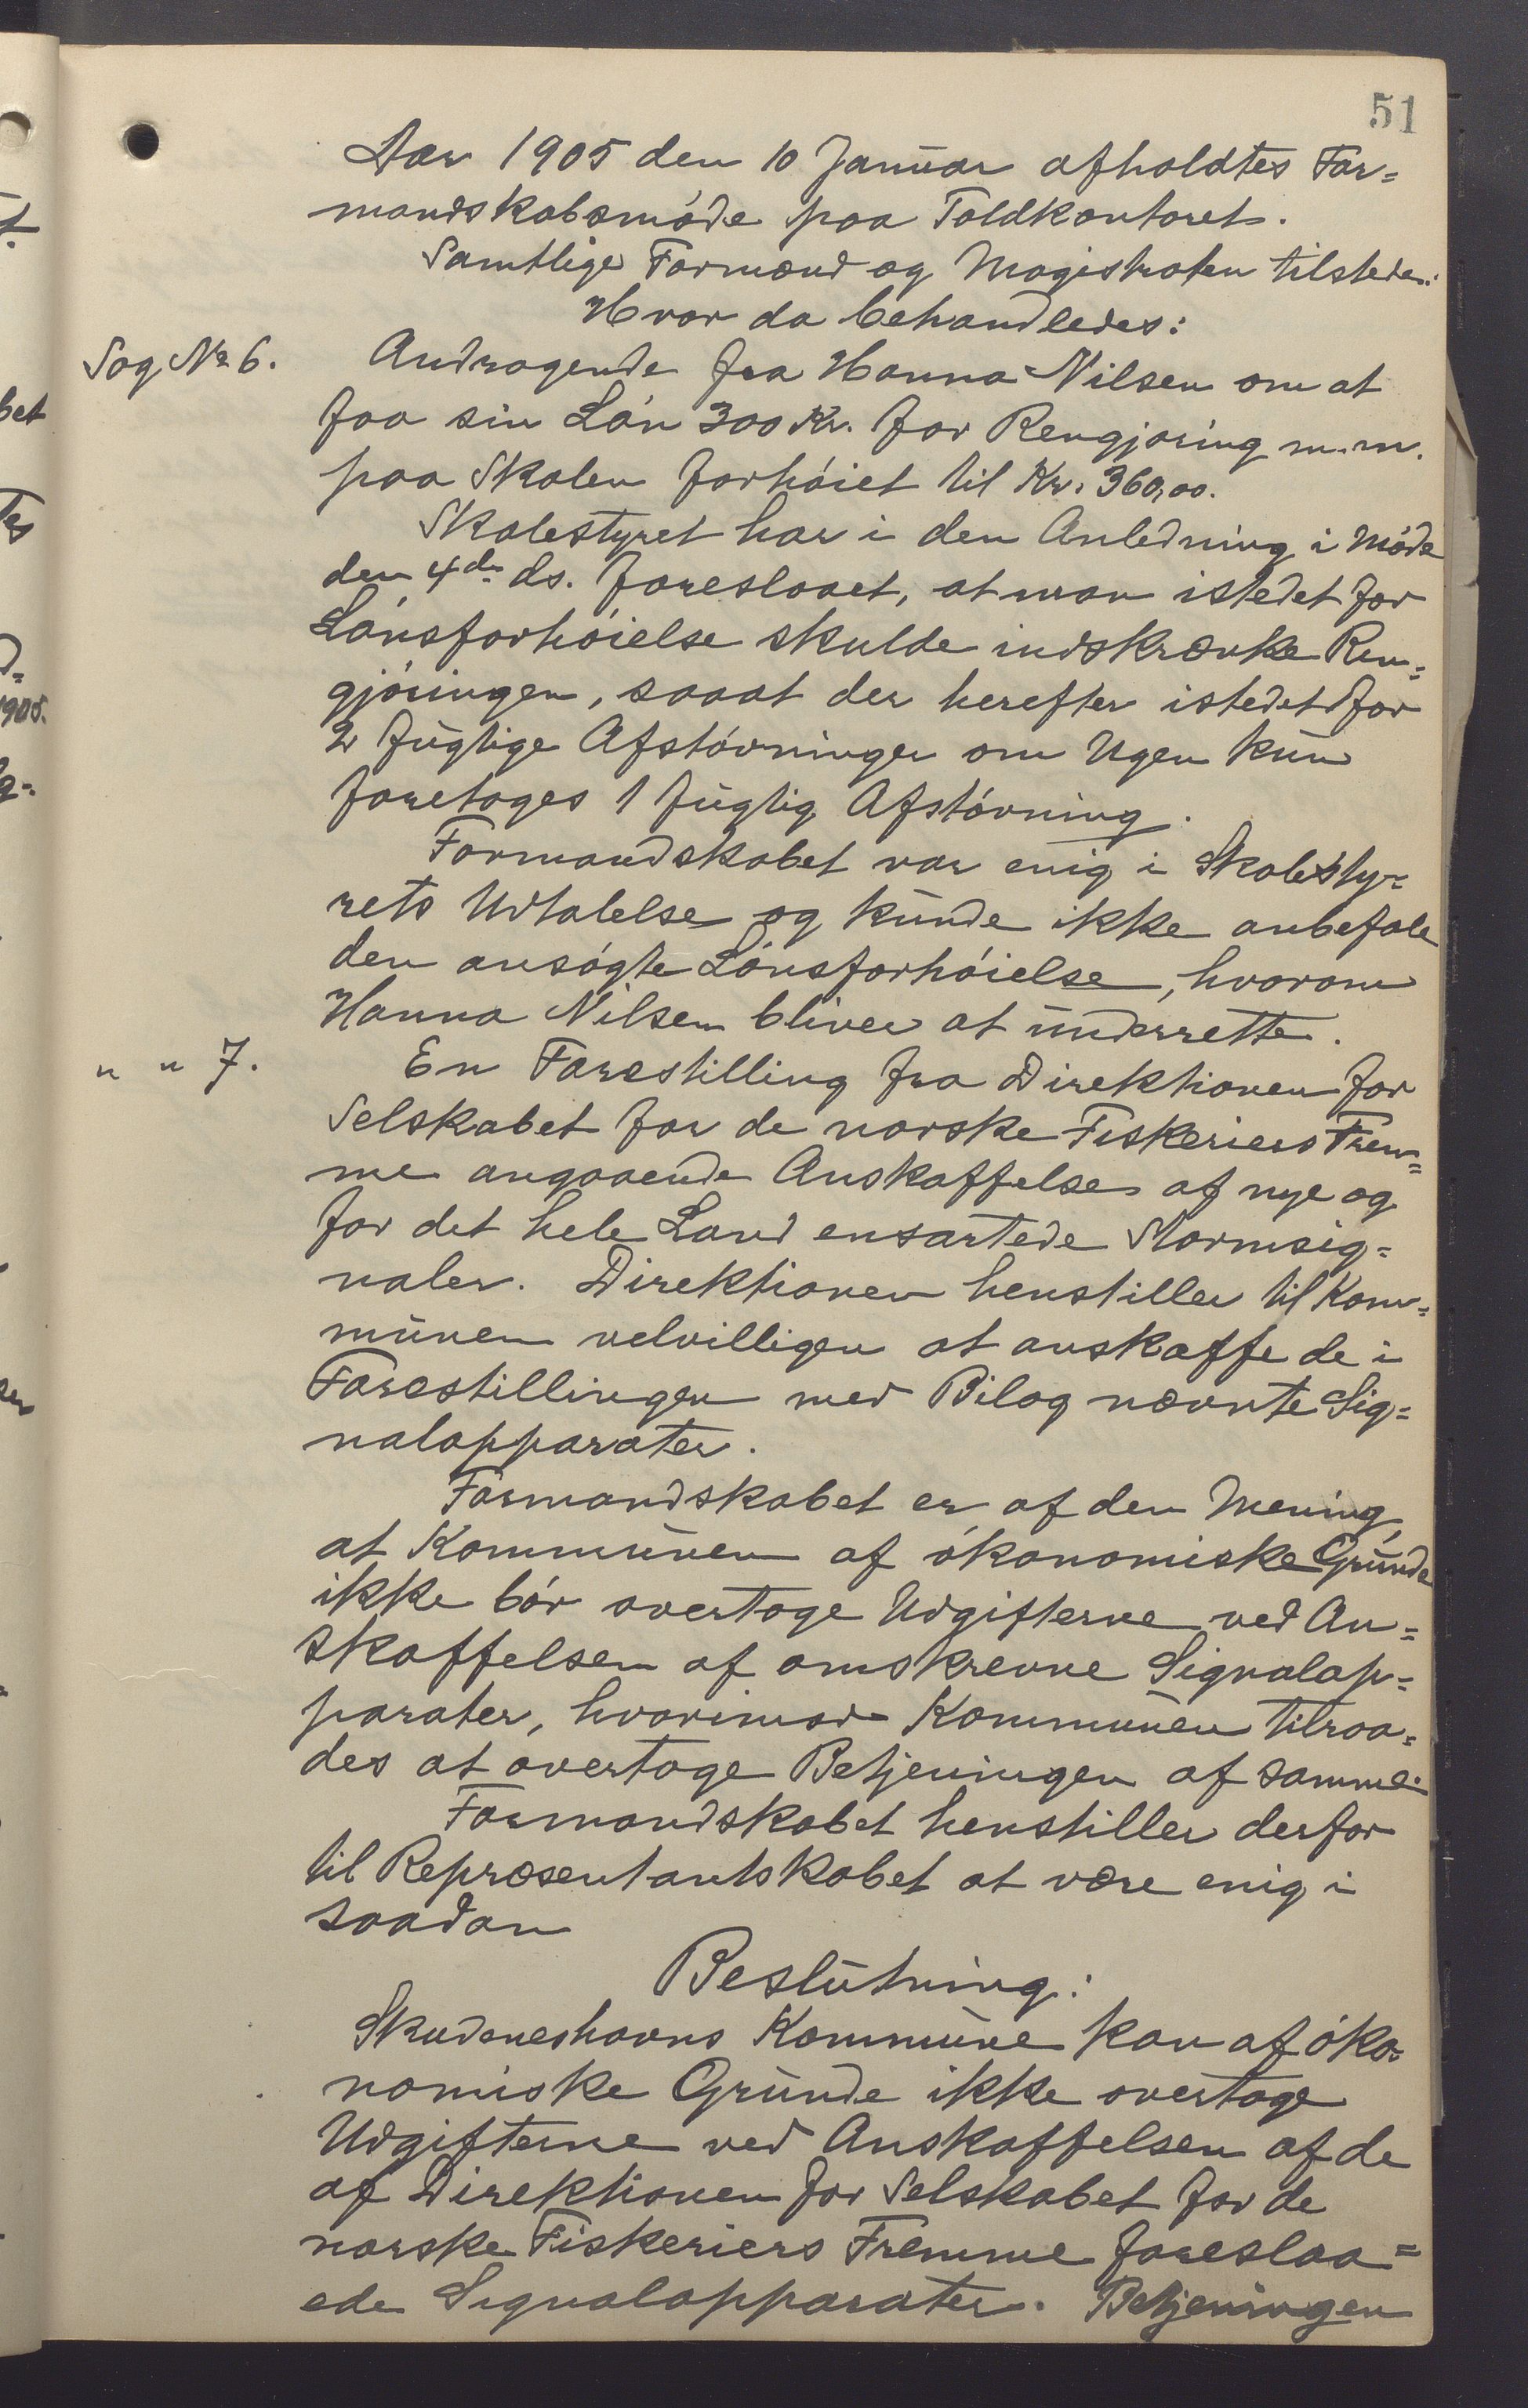 51
Aar 1905 den 10 Januar afholdtes For=
mandskabsmöde paa Toldkontoret.
Samtlige Formænd og Magistraten tilstede.
Hvor da behandledes:
Sag No 6. Andragende fra Hanna Nilsen om at
faa sin Lön 300 Kr. for Rengjöring m.m.
paa Skolen forhöiet til Kr. 360,00.
Skolestyret har i den Anledning i Möde
den 4de ds. foreslaaet, at man istedetfor
Lönsforhöielse skulde indskrænke Ren=
gjöringen, saaat der herefter istedetfor
2 fugtige Afstövninger om Ugen kun
foretages 1 fugtig Afstövning.
Formandskabet var enig i Skolesty=
rets Udtalelse og kunde ikke anbefale
den ansögte Lönsforhöielse, hvorom
Hanna Nilsen bliver at underrette.
" " 7. En Forestilling fra Direktionen for
Selskabet for de norske Fiskeriers Frem=
me angaaende Anskaffelse af nye og
for det hele Land ensartede Stormsig=
naler. Direktionen henstiller til Kom=
munen velvilligen at anskaffe de i
Forestillingen med Bilag nævnte Sig=
nalapparater.
Formandskabet er af den Mening,
at Kommunen af ökonomiske Grunde
ikke bör overtage Udgifterne ved An=
skaffelsen af omskrevne Signalap=
parater, hvorimod Kommunen tilraa=
des at overtage Betjeningen af samme.
Formandskabet henstiller derfor
til Repræsentantskabet at være enig i
saadan
Beslutning:
Skudeneshavns Kommune kan af öko=
nomiske Grunde ikke overtage
Udgifterne ved Anskaffelsen af de
af Direktionen for Selskabet for de
norske Fiskeriers Fremme foreslaa=
ede Signalapparater. Betjeningen